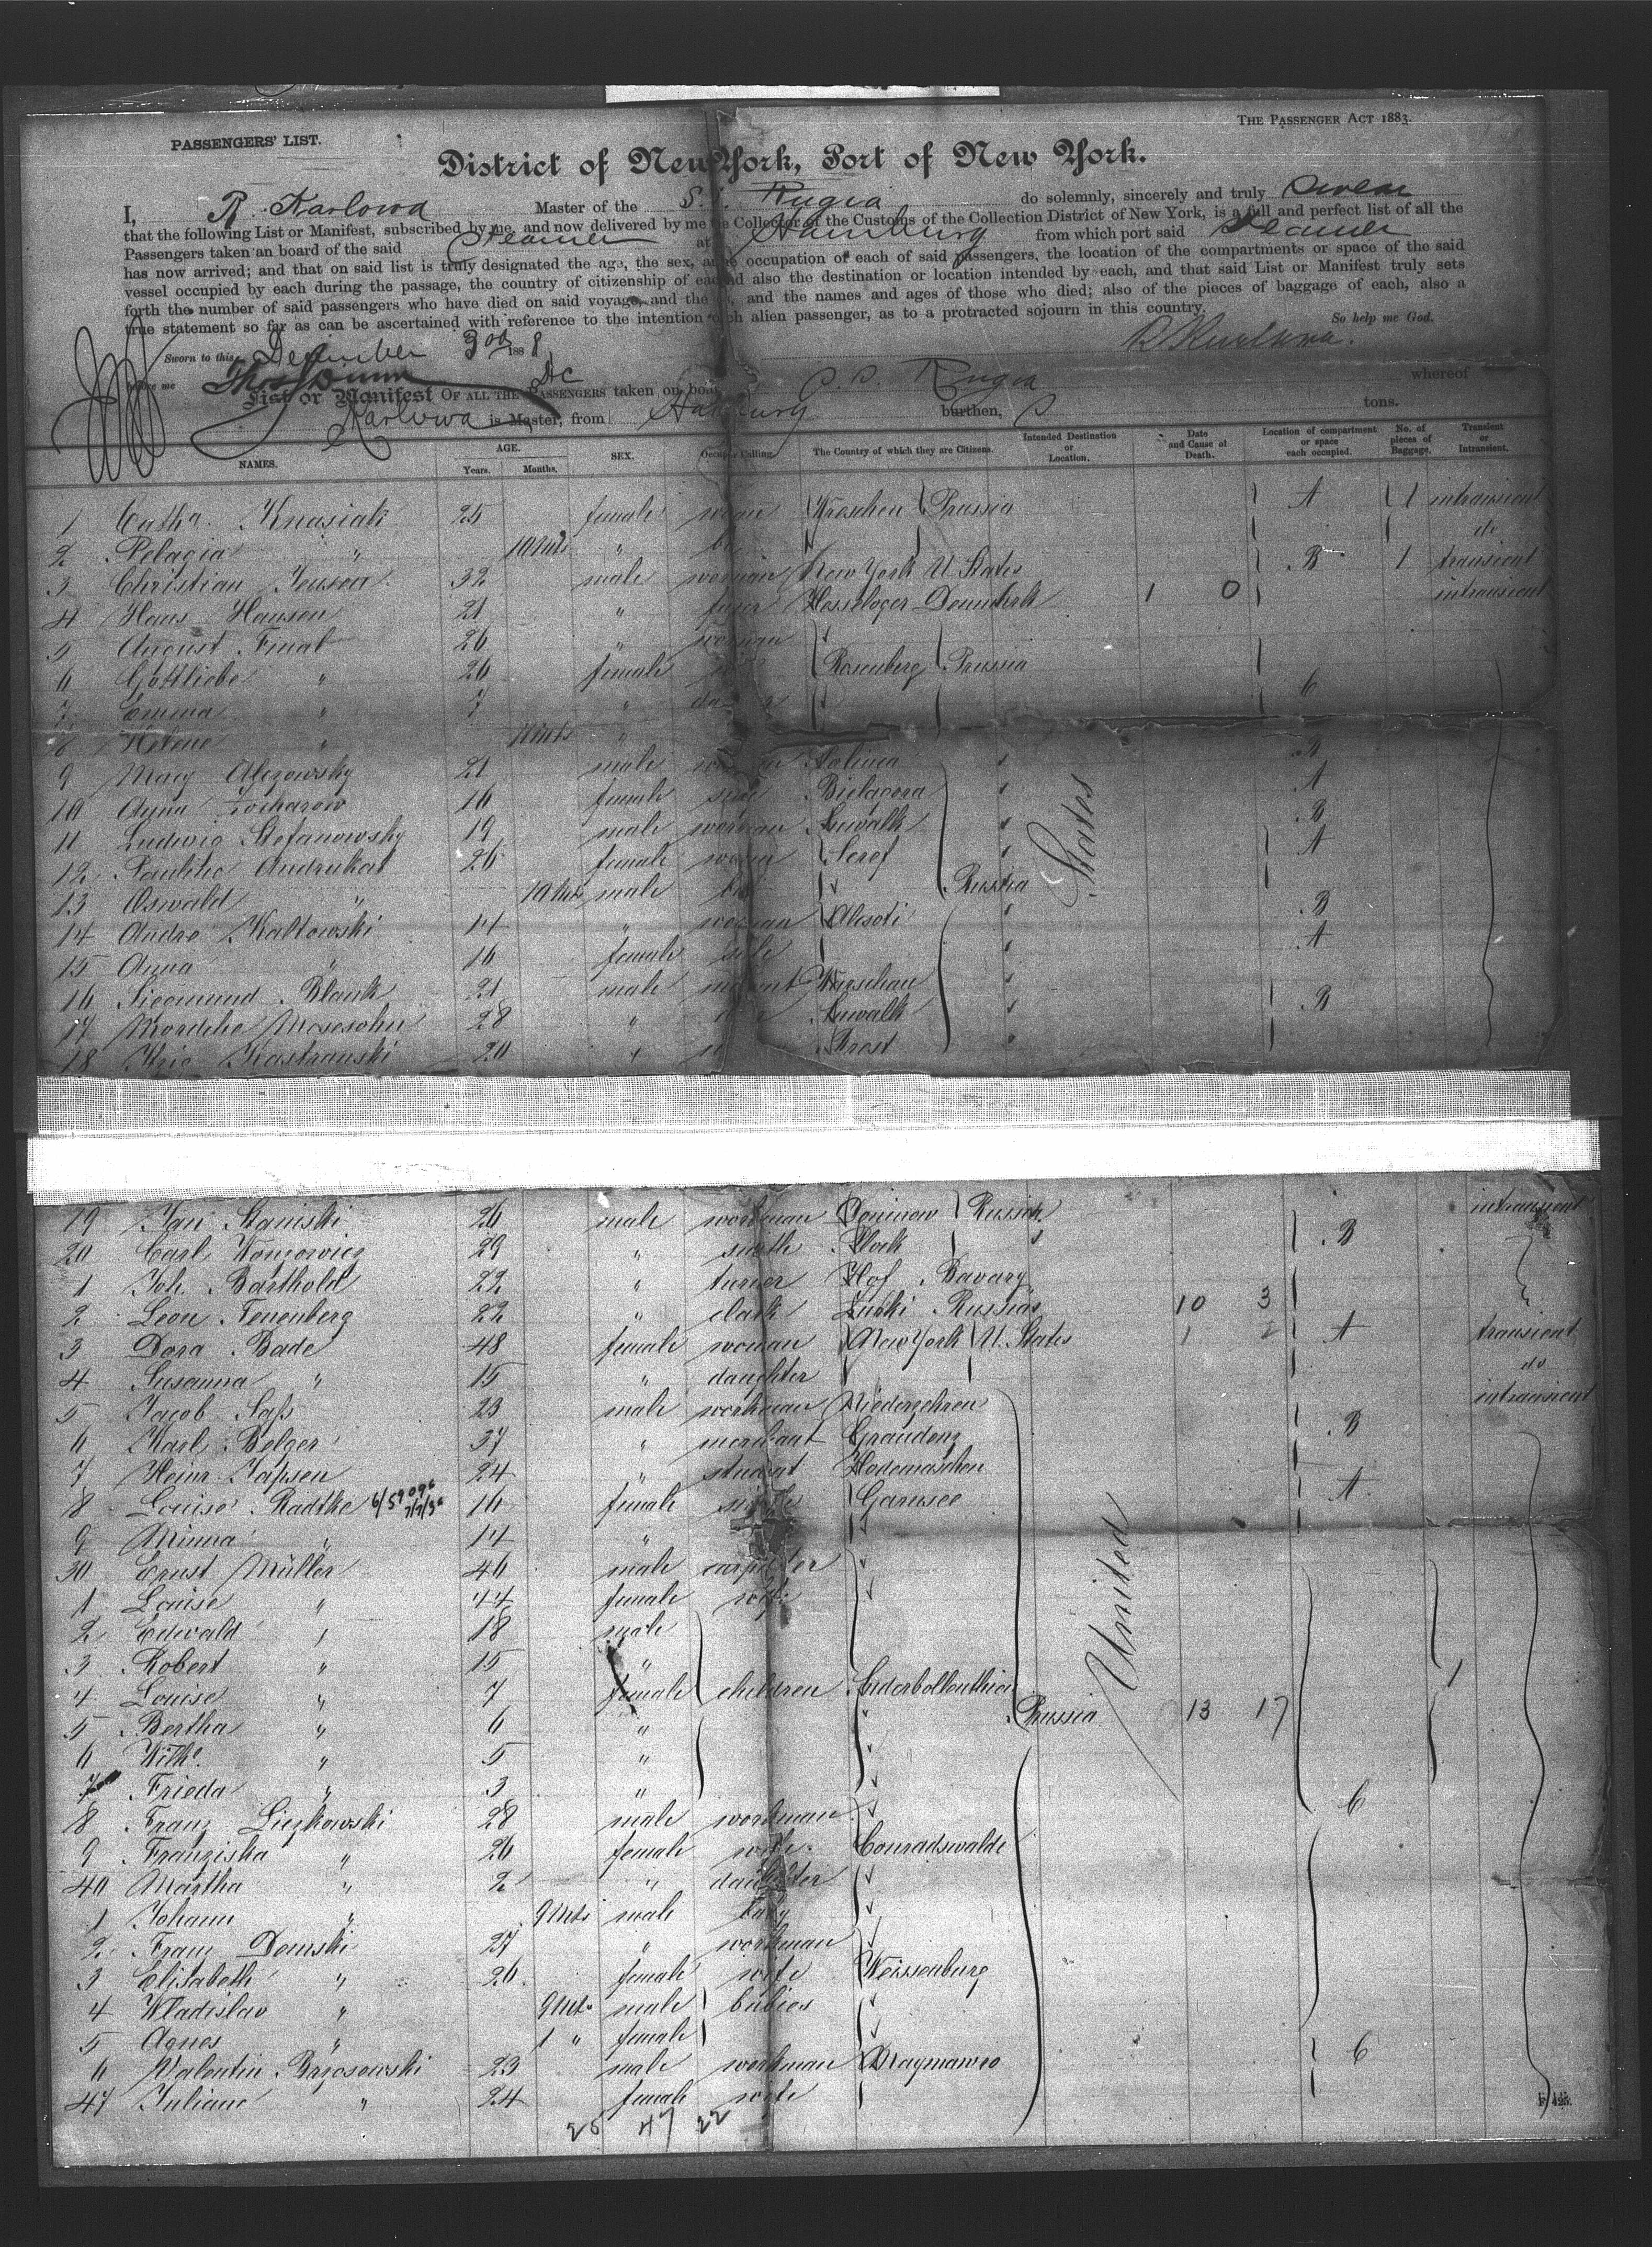 PASSENGERS' LIST.
THE PASSENGER ACT 1883.
District of New York, Port of New York.
I, R. Karlowa Master of the S. S. Rugia do solemnly, sincerely and truly swear
that the following List or Manifest, subscribed by me, and now delivered by me the Collector of the Customs of the Collection District of New York, is a full and perfect list of all the
Passengers taken an board of the said Steamer at Hamburg from which port said Steamer
has now arrived; and that on said list is truly designated the age, the sex, and occupation of each of said passengers, the location of the compartments or space of the said
vessel occupied by each during the passage, the country of citizenship of each and also the destination or location intended by each, and that said List or Manifest truly sets
forth the number of said passengers who have died on said voyage, and the and the names and ages of those who died; also of the pieces of baggage of each, also a
true statement so far as can be ascertained with reference to the intention of each alien passenger, as to a protracted sojourn in this country.
So help me God.
Sworn to this December 3rd 1888
R Karlowa.
before me Thos Dunn
List or Manifest OF ALL THE PASSENGERS taken on board S. S. Rugia whereof
Karlowa is Master, from Hamburg burthen, tons.
NAMES. AGE. Years. Months. SEX. Calling. The Country of which they are Citizens. Intended Destination or Location. Date and Cause of Death. Location of compartment or space each occupied. No. of pieces of Baggage. Transient or Intransient.
1 Catha. Knasiak 25 female Wreschen Prussia A 1 intransient
2 Pelagia " 10 Mts " do
3 Christian Jensen 32 male workman New York U. States B 1 transient
4 Hans Hansen 21 " 1 0 intransient
5 August Final 26 " workman
6 Gottliebe " 26 female Rosenberg Prussia
7 Emma " 7 " C
8 Helene " 11 Mts "
9 21 male B
10 Anna 16 female A
11 Ludwig Stefanowsky 19 male workman Suwalk B
12 Andrukat 26 female A
13 Oswald " 10 Mts male Russia States
14 Andre Kaltowski 14 " workman B
15 Anna " 16 female A
16 Siegmund Blank 21 male Warschau
17 Mosesohn 28 " Suwalk B
18 Kastranski 20 "
19 Jan Staniski 26 male workman Russia intransient
20 Carl 29 " smith Plock B
1 Joh. Barthold 22 " turner Hof Bavary
2 Leon Tenenberg 22 " clark Russia 10 3
3 Dora Bade 48 female woman New York U. States 1 2 A transient
4 Susanna " 15 " daughter do
5 Jacob Saß 23 male workman Niederzehren intransient
6 Karl Belger 37 " merchant Graudenz B
7 Heinr. Japsen 24 " student Hademarschen
8 Louise Radtke 16 female single Garnsee A
9 Minna " 14 "
30 Ernst Müller 46 male carpenter
1 Louise " 44 female wife
2 Edwald " 18 male United
3 Robert " 15 "
4 Louise " 7 female children 1
5 Bertha " 6 " Prussia 13 17
6 Wilh. " 5 "
7 Frieda " 3 "
8 Franz Liezkowski 28 male workman C
9 Franziska " 26 female wife Conradswalde
40 Martha " 2 " daughter
1 Johann " 9 Mts male baby
2 Franz Domski 27 " workman
3 Elisabeth " 26 female wife Weissenburg
4 Wladislav " 9 Mts male babies
5 Agnes " 1 " female
6 Valentin Brzosowski 23 male workman C
47 Juliane " 24 female wife
25 47 22